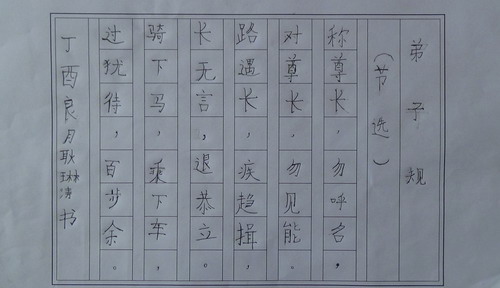 弟子规
（节选）
称尊长，勿呼名，
对尊长，勿见能。
路遇长，疾趋揖，
长无言，退恭立。
骑下马，乘下车，
过犹待，百步余。
丁酉良月耿琳涛书